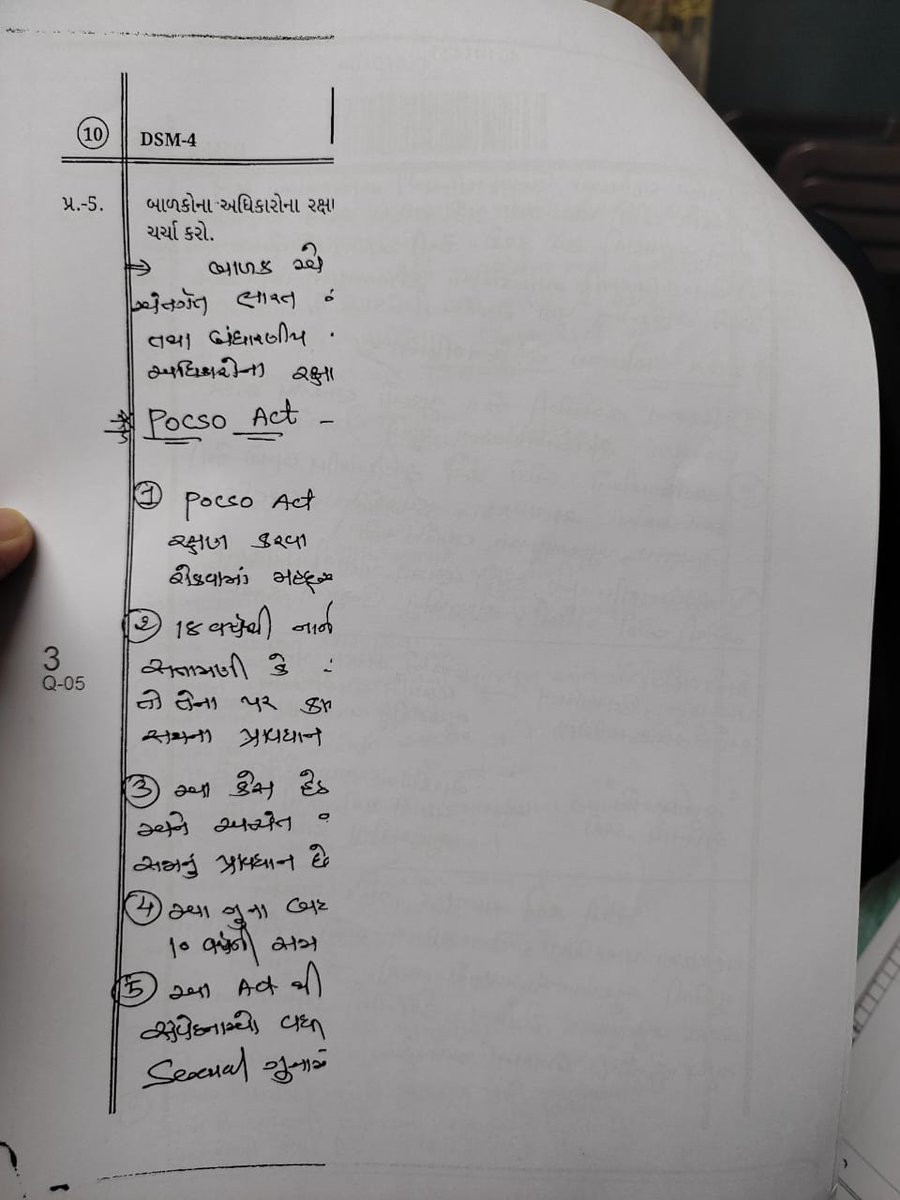 10 DSM-4
પ્ર.-5. બાળકોના અધિકારોના રક્ષા
ચર્ચા કરો.
⇒ બાળક એ
અંતર્ગત ભારત
તથા બંધારણીય
અધિકારોના રક્ષા
Pocso Act -
① Pocso Act
રક્ષણ કરવા
રોકવામાં મહત્ત્વ
② 18 વર્ષથી નાન
સતામણી કે
તો તેના પર કા
સજાના પ્રાવધાન
3
Q-05
③ આ કેસ હેઠ
અને અત્યંત
સજાનું પ્રાવધાન છે
④ આ ગુના બદ
૧૦ વર્ષની સજા
⑤ આ Act થી
સંવેદનાઓ વધા
Sexual ગુનામાં